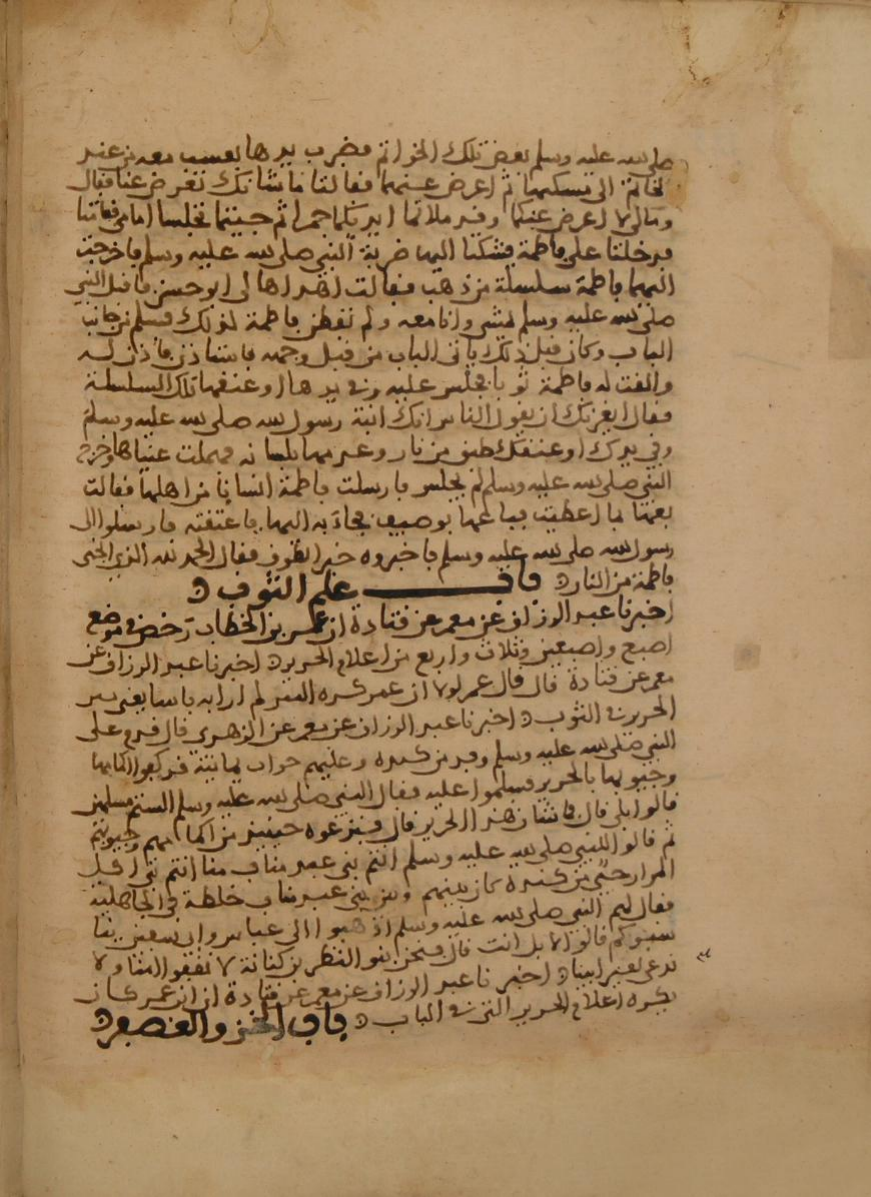 صلى الله عليه وسلم بعض تلك الخواتم فضرب يدها بعسيب معه من عند
الخاتم الى مسكها ثم اعرض عنهما فقالتا ما شانك تعرض عنا فقال
ومالي لا اعرض عنكما وقد ملاتما ايديكما جمرا ثم جيتما تجلسا امامي فقامتا
فدخلتا على فاطمة فشكتا اليها ضربة النبي صلى الله عليه وسلم فاخرجت
اليهما فاطمة سلسلة من ذهب فقالت اهداها لي ابو حسن فاقبل النبي
صلى الله عليه وسلم يمشي وانا معه ولم تفطن فاطمة لذلك فسلم من جانب
الباب وكان قبل ذلك ياتي الباب من قبل وجهه فاستاذن فاذن له
والقت له فاطمة ثوبا فجلس عليه وفي يدها او عنقها تلك السلسلة
فقال ايغرنك ان يقول الناس انك ابنة رسول الله صلى الله عليه وسلم
وفي يدك او عنقك طبق من نار وعرمها بلسانه فهملت عيناها وخرج
النبي صلى الله عليه وسلم لم يجلس فارسلت فاطمة انسانا من اهلها فقالت
بعها بما اعطيت فباعها بوصيف فجاء به اليها فاعتقته فارسلوا الى
رسول الله صلى الله عليه وسلم فاخبروه خبر الطوق فقال الحمد لله الذي انجى
فاطمة من النار باب علم الثوب
اخبرنا عبد الرزاق عن معمر عن قتادة ان عمر بن الخطاب رخص في موضع
اصبع واصبعين وثلاث واربع من اعلام الحرير اخبرنا عبد الرزاق عن
معمر عن قتادة قال قال عمر لولا ان عمر كره الستر لم ار به باسا يعني سر
الحرير في الثوب اخبرنا عبد الرزاق عن معمر عن الزهري قال قدم على
النبي صلى الله عليه وسلم وفد من كندة وعليهم جباب يمانية قد كفوا اكمامها
وجيوبها بالحرير فسلموا عليه فقال النبي صلى الله عليه وسلم الستم مسلمين
قالوا بلى قال فما شان هذا الحرير قال فنزعوه حينيذ من اكمامهم وجيوبهم
ثم قالوا للنبي صلى الله عليه وسلم انتم بني عبد مناف منا انتم بني اكل
المرار حي من كندة كان بينهم وبين بني عبد مناف خلطة في الجاهلية
فقال لهم النبي صلى الله عليه وسلم اذهبوا الى عباس وابي سفين
ينسبوكم قالوا لا بل انت قال فنحن بنو النضر بن كنانة لا نقفو امنا ولا
ندعى لغير ابينا اخبرنا عبد الرزاق عن معمر عن قتادة ان ابن عمر كان
يكره اعلام الحرير التي في الباب باب الخز والعصفر